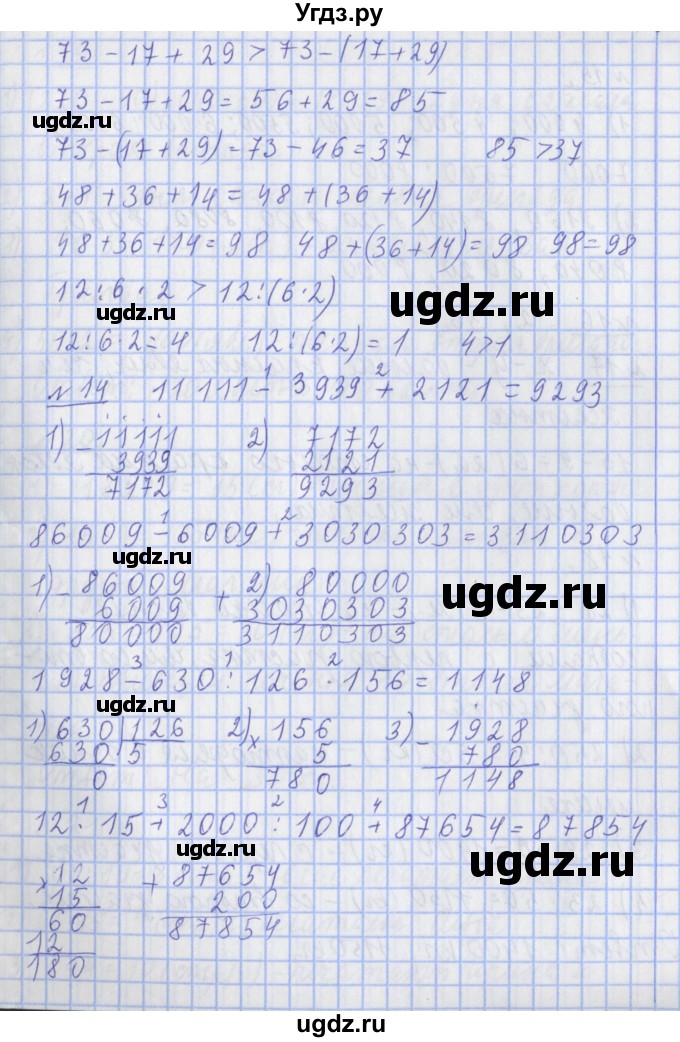 Угдз.ру
73 - 17 + 29 > 73 - (17 + 29)
73 - 17 + 29 = 56 + 29 = 85
ugdz.ru
73 - (17 + 29) = 73 - 46 = 37 85 > 37
48 + 36 + 14 = 48 + (36 + 14)
48 + 36 + 14 = 98 48 + (36 + 14) = 98 98 = 98
12 : 6 · 2 > 12 : (6 · 2)
ugdz.ru ugdz.ru
12 : 6 · 2 = 4 12 : (6 · 2) = 1 4 > 1
1 2
№ 14 11111 - 3939 + 2121 = 9293
1) - 11111 2) 7172
3939 2121
7172 9293
1 2
86009 - 6009 + 3030303 = 3110303
ugdz.ru
1) - 86009 + 2) 80000
6009 3030303 ugdz.ru
80000 3110303
3 1 2
1928 - 630 : 126 · 156 = 1148
1) 630 126 2) × 156 3) - 1928
630 5 5 780
0 780 1148
ugdz.ru
1 3 2 4
12 · 15 + 2000 : 100 + 87654 = 87854
ugdz.ru
× 12 + 87654
15 200
60 87854
12
180
ugdz.ru ugdz.ru
ugdz.ru